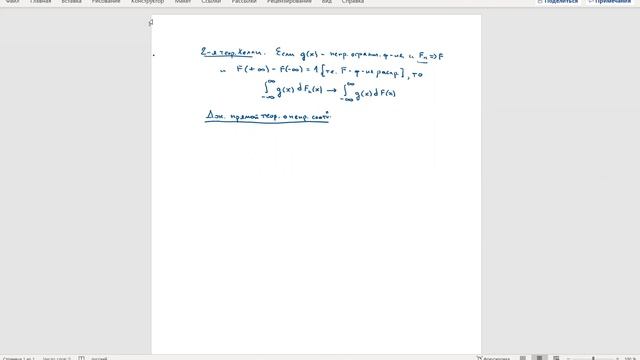 Файл Главная Вставка Рисование Конструктор Макет Ссылки Рассылки Рецензирование Вид Справка Поделиться Примечания
2-я теор. Хелли. Если g(x) - непр. огранич. ф-ия и Fₙ => F
и F(+∞) - F(-∞) = 1 [т.е. F - ф-ия распр.], то
∫_{-∞}^{∞} g(x) dFₙ(x) → ∫_{-∞}^{∞} g(x) dF(x)
Док. прямой теор. о непр. соотв.
Страница 1 из 1 русский Фокусировка